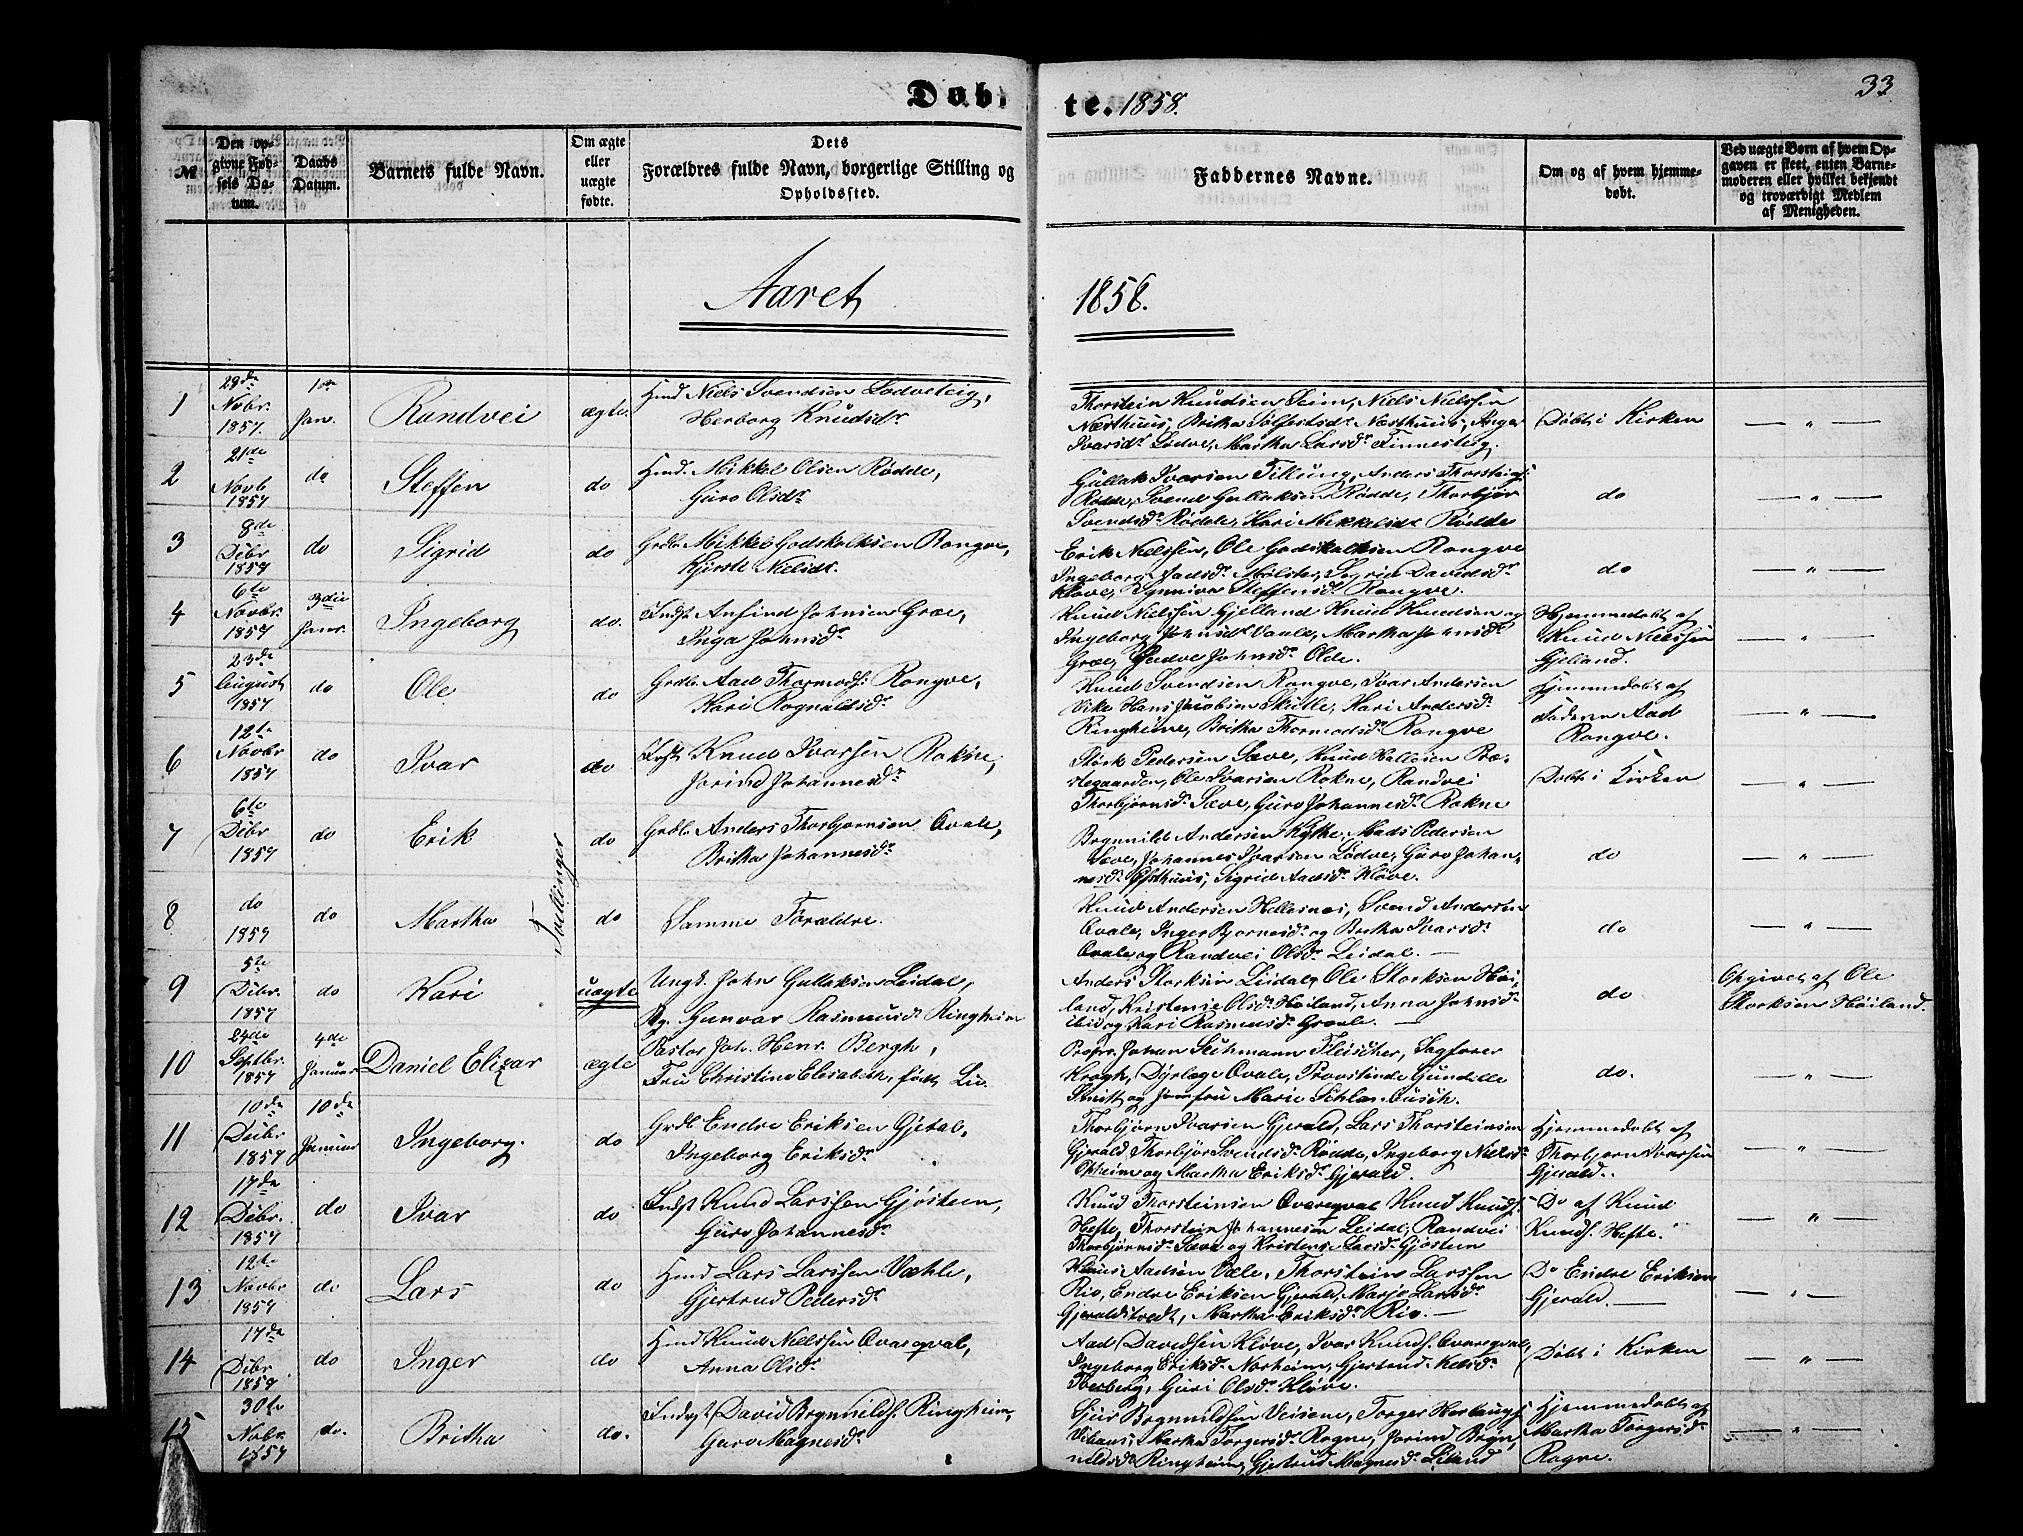 Døbte. 1858.
33
№
Den opgivne Fødsels Datum.
Daabs Datum.
Barnets fulde Navn.
Om ægte eller uægte fødte.
Dets Forældres fulde Navn, borgerlige Stilling og Opholdssted.
Faddernes Navne.
Om og af hvem hjemmedøbt.
Ved uægte Børn af hvem Opgaven er skeet, enten Barnemoderen eller hvilket bekjendt og troværdigt Medlem af Menigheden.
Aaret 1858.
1
28de Novbr. 1857.
1ste Jan.
Randvei
ægte
Hmd Niels Svendsen Lødveteig,
Herborg Knudsdr
Thorstein Knudsen Seim, Niels Nielssen
Næsthuus, Britha Sjølfestsdr Næsthuus, Inger
Ivarsdr Lødve, Martha Larsdr Finnesteig.
Døbt i Kirken
— " —
2
21de Novb 1857
do
Steffen
do
Hmd. Mikkel Olsen Rødde,
Guro Olsdr
Gullak Ivarsen Tillung, Anders Thorsteins:
Rødde, Svend Gullaksen Rødde, Thorbjør
Svendsdr Rødde, Kari Mikkelsdr Rødde
do
— " —
3
8de Debr 1857
do
Sigrid
do
Grdb. Mikkel Godskalksen Rongve,
Kjersti Nielsdr.
Erik Nielssen, Ole Godskalksen Rongve
Ingeborg Aadsdr Mølster, Sigrid Davidsdr
Kløve, Synniva Steffensdr Rongve.
do
— " —
4
6te Novbr. 1857
3die Janr.
Ingeborg
do.
Indst Anfind Johnsen Græe,
Inga Johnsdr
Knud Nielssen Gjelland Knud Knudsen og
Ingeborg Johnsdr Vaale, Martha Johnsdr
Græe, Gudve Johnsdr Olde.
Hjemmedøbt af
Knud Nielssen
Gjelland.
— " —
5
23de August 1857
do
Ole
do
Grdb. Aad Thormods: Rongve,
Kari Rognaldsdr
Knud Svendsen Rongve, Ivar Andersen
Vike Hans Jacobsen Skutle, Kari Andersdr
Ringheim, Britha Thormodsdr Rongve
Hjemmedøbt af
Faderen Aad
Rongve.
— " —
6
12te Novbr 1857
do
Ivar
do
Inst Knud Ivarssen Rokne,
Jorind Johannesdr
Størk Pedersen Sæve, Knud Kollesen Præ-
stegaarden, Ole Ivarsen Rokne, Randvei
Thorbjørnsdr Sæve, Guro Johannesdr Rokne
Døbt i Kirken
— " —
7
6te Debr 1857
do
Erik
Tvillinger
do
Grdb. Anders Thorbjørnsen Qvale,
Britha Johannesdr
Brynnild Andersen Kyte, Mads Pedersen
Sæve, Johannes Ivarson Lødve, Guro Johan-
nesdr Østhuus, Sigrid Aadsdr Kløve.
do
— " —
8
do 1857
do
Martha
do
Samme Forældre.
Knud Andersen Hellesnes, Svend Andersen
Qvale, Inger Bjornesdr og Britha Ivarsdr
Qvale og Randvei Olsdr Leidal. —
do
— " —
9
5te Debr. 1857
do
Kari
uægte
Ungk. John Gullaksen Leidal,
Pg. Gunvor Rasmusdr Ringheim
Anders Storksen Leidal, Ole Storksen Høi-
land, Kristense Olsdr Høiland, Anna Johnsdr
ibid og Kari Rasmusdr Græale. —
do
Opgivet af Ole
Storksen Høiland.
10
24de Septbr. 1857
4de Januar
Daniel Elizar
ægte
Pastor Joh. Henr. Bergh,
Fru Christine Elisabeth, født Lie.
Propr. Johan Sechmann Fleischer, Sagfører
Krogh, Dyrlæge Qvale, Provstinde Gundelle
og Jomfru Marie
do.
— " —
11
10de Debr 1857
10de Januar
Ingeborg.
do
Grdb Endre Eriksen Gjeral,
Ingeborg Eriksdr
Thorbjørn Ivarsen Gjerald, Lars Thorsteinsen
Gjerald Thorbjør Svendsdr Rødde, Ingeborg Nielsdr
Okheim og Martha Eriksdr Gjerald.
Hjemmedøbt af
Thorbjørn Ivarssen
Gjerald.
— " —
12
17de Debr. 1857
do
Ivar
do
Indst Knud Larssen Gjøstein,
Guro Johannesdr
Knud Thorsteinsen Qvareqval Knud Knuds:
Hefte, Thorstein Johannesen Leidal, Randvei
Thorbjørnsdr Sæve og Kristense Larsdr Gjøstein
Do af Knud
Knuds. Hefte.
— " —
13
12te Novbr 1857
do
Lars
do
Hmd Lars Larssen Væhle,
Gjertrud Pedersdr
Klaus Aadsen Væle, Thorstein Larssen
Rio, Endre Eriksen Gjerald, Marjo Larsdr
Gjeralditvedt, Martha Eriksdr Rio. —
Do Endre Eriksen
Gjerald. —
— " —
14
17de Debr. 1857
do
Inger
do
Hmd Knud Nielssen Qvareqval,
Anna Olsdr
Aad Davidsen Kløve, Ivar Knuds. Qvareqval,
Ingeborg Eriksdr Norheim, Gjertrud
Guri Olsdr Kløve.
Døbt i Kirken
— " —
15
30te Nobr. 1857
do.
Britha
do.
Indst David Brynnilds. Ringheim,
Guro Magnesdr
Sjur Brynnildsen Veisene, Torger
Martha Torgersdr Rogne, Jorind Bryn-
nildsdr Ringheim, Gjertrud Magnesdr Lilland
Hjemmedøbt af
Martha Torgersdr
Rogne.
— " —